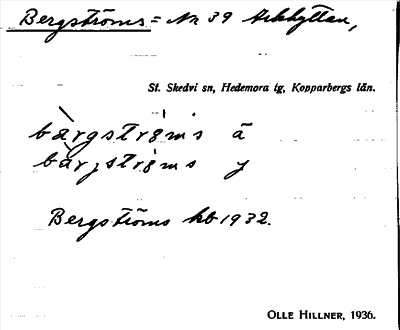 Bergströms = Nr 39 Arkhyttan,
St. Skedvi sn, Hedemora tg, Kopparbergs län.
bàrgstrø̀mìs ä
bàrjstrø̀ms y
Bergströms hb 1932.
OLLE HILLNER, 1936.